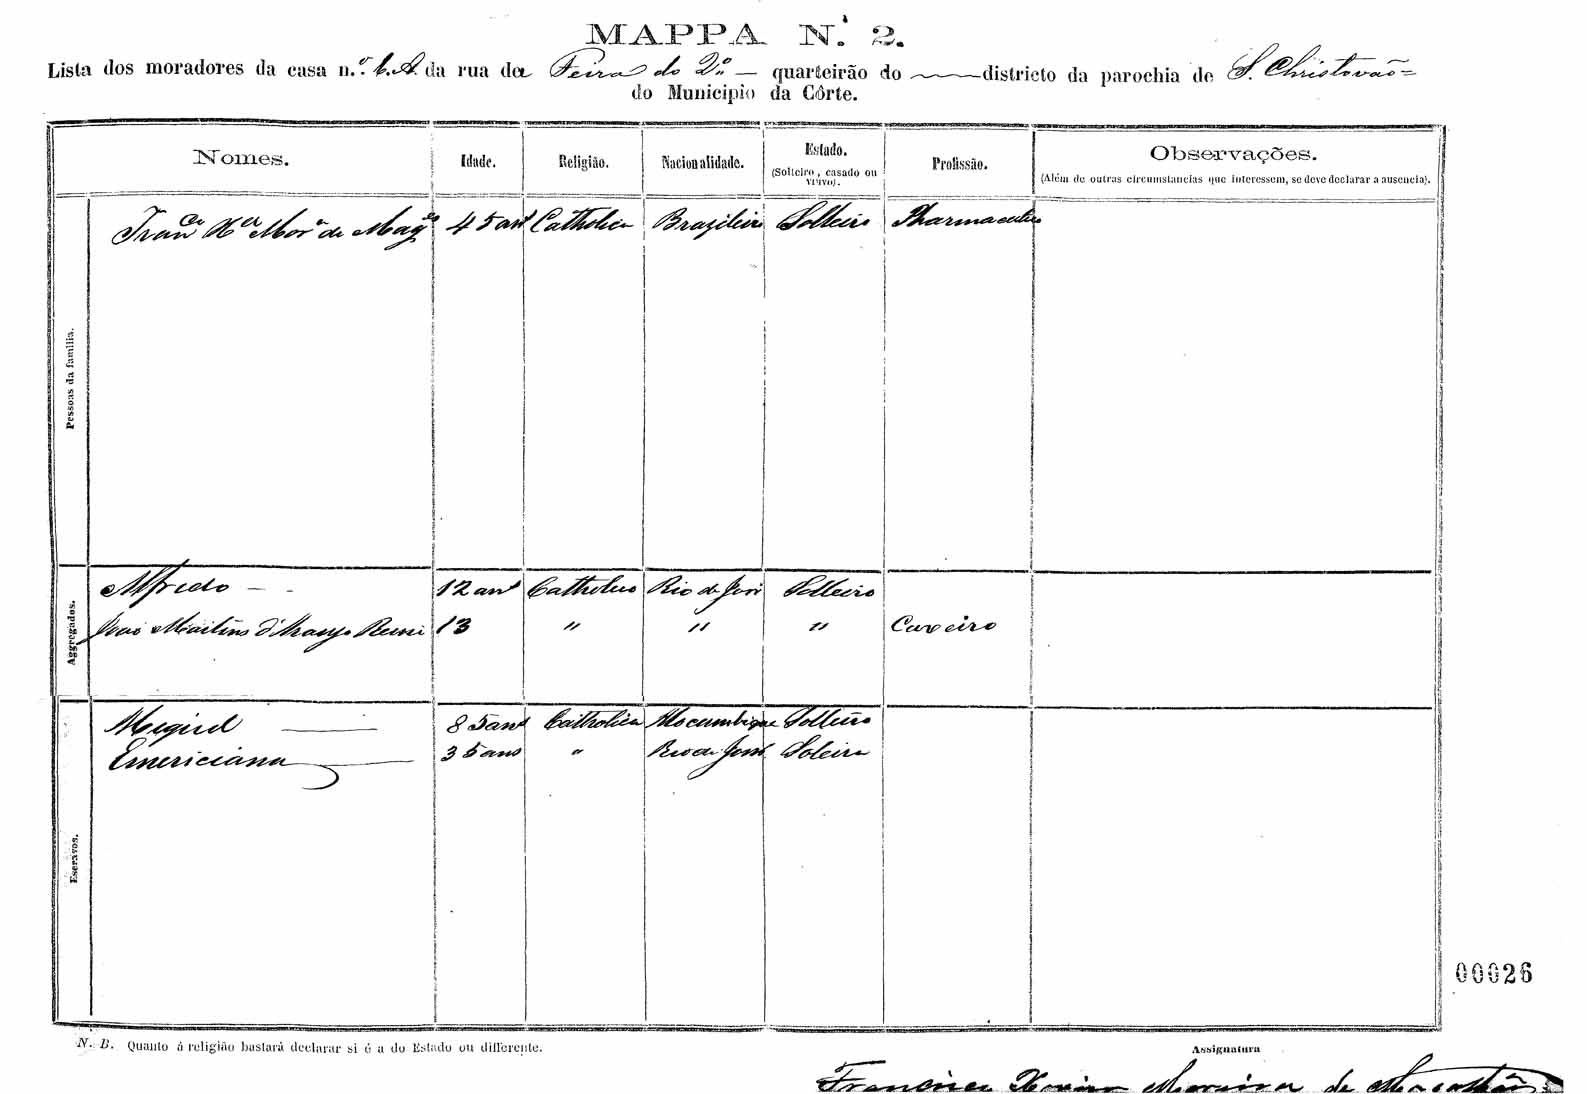 MAPPA N.º 2.
Lista dos moradores da casa n.º 6.A. da rua da Feira do 2º — quarteirão do — districto da parochia de S. Christovão =
do Municipio da Côrte.
Nomes. Idade. Religião. Nacionalidade. Estado. (Solteiro, casado ou viuvo). Profissão. Observações. (Além de outras circumstancias que interessem, se deve declarar a ausencia).
Pessoas da familia.
Franco Xer Mora de Mages 45 ans Catholica Brazileiro Solteiro Pharmaceutico
Aggregados.
Alfredo — - 12 ans Catholico Rio de Janº Solteiro
João Martins d'Araujo 13 " " " Caxeiro
Escravos.
Miguel — 85 ans Catholica Mocumbique Solteiro
Emericiana — 35 ans " Rio de Janº Soleira
00026
N. B. Quanto á religião bastará declarar si é a do Estado ou differente.
Assignatura
Francisco Xavier Moreira de Magalhães